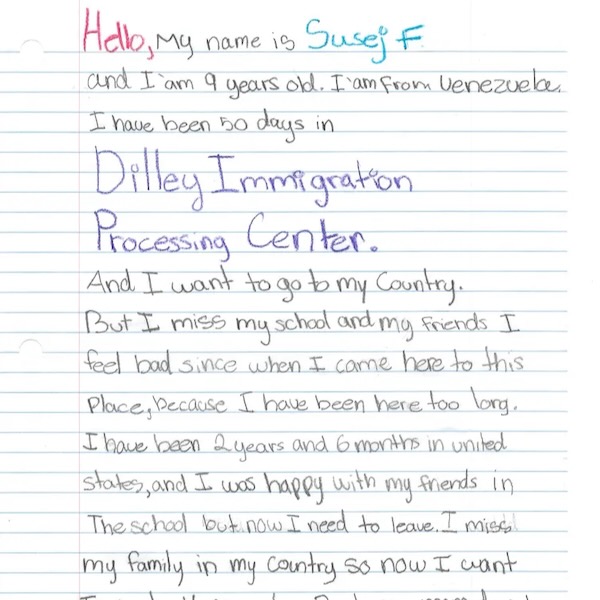 Hello, My name is Susej F.
and I'am 9 years old. I'am from Venezuela.
I have been 50 days in
Dilley Immigration
Processing Center.
And I want to go to my Country.
But I miss my school and my friends I
feel bad since when I came here to this
Place, because I have been here too long.
I have been 2 years and 6 months in united
states, and I was happy with my friends in
The school but now I need to leave. I miss
my family in my Country so now I want